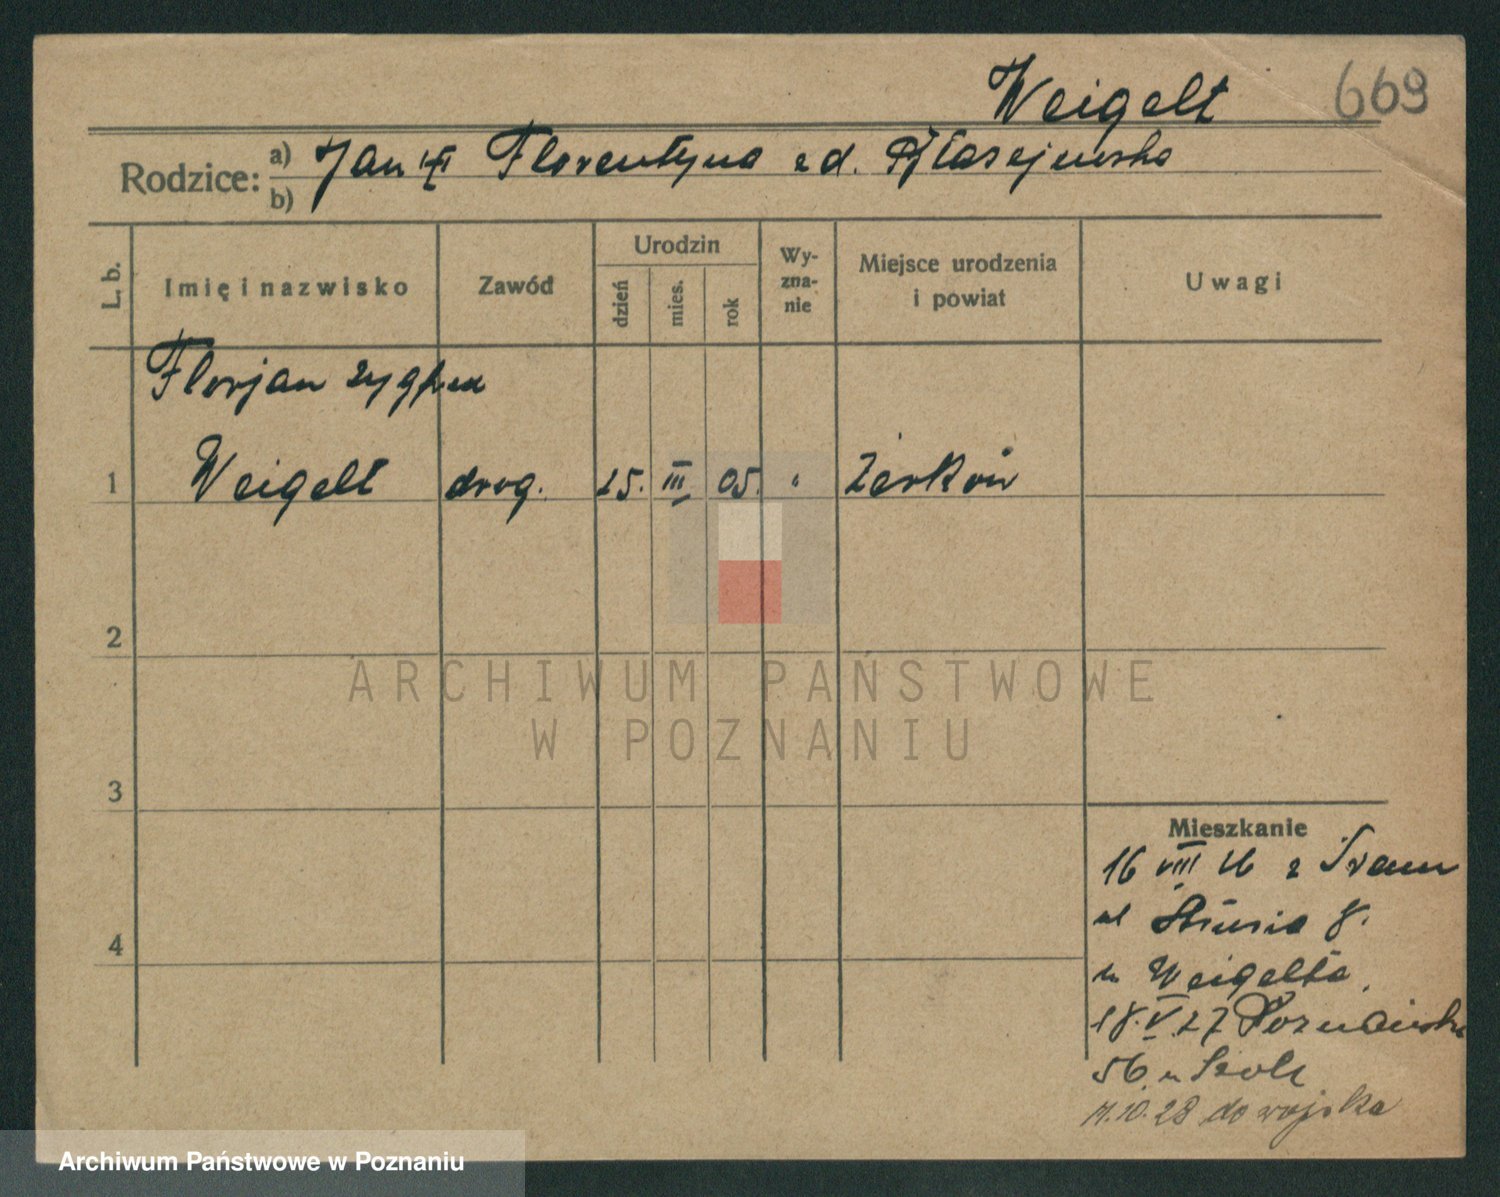 Weigelt 669
Rodzice: a) Jan i Florentyna z d.
b)
L. b. Imię i nazwisko Zawód Urodzin dzień mies. rok Wyznanie Miejsce urodzenia i powiat Uwagi
Florjan Zygfryd
1 Weigelt drog. 25. III 05. Żerków
2
3
4
Mieszkanie
16 VIII 26 z Śrem
ul 8.
u Weigelta
18.V.27 Poznańska
56 u
10.28 do wojska
ARCHIWUM PAŃSTWOWE
W POZNANIU
Archiwum Państwowe w Poznaniu